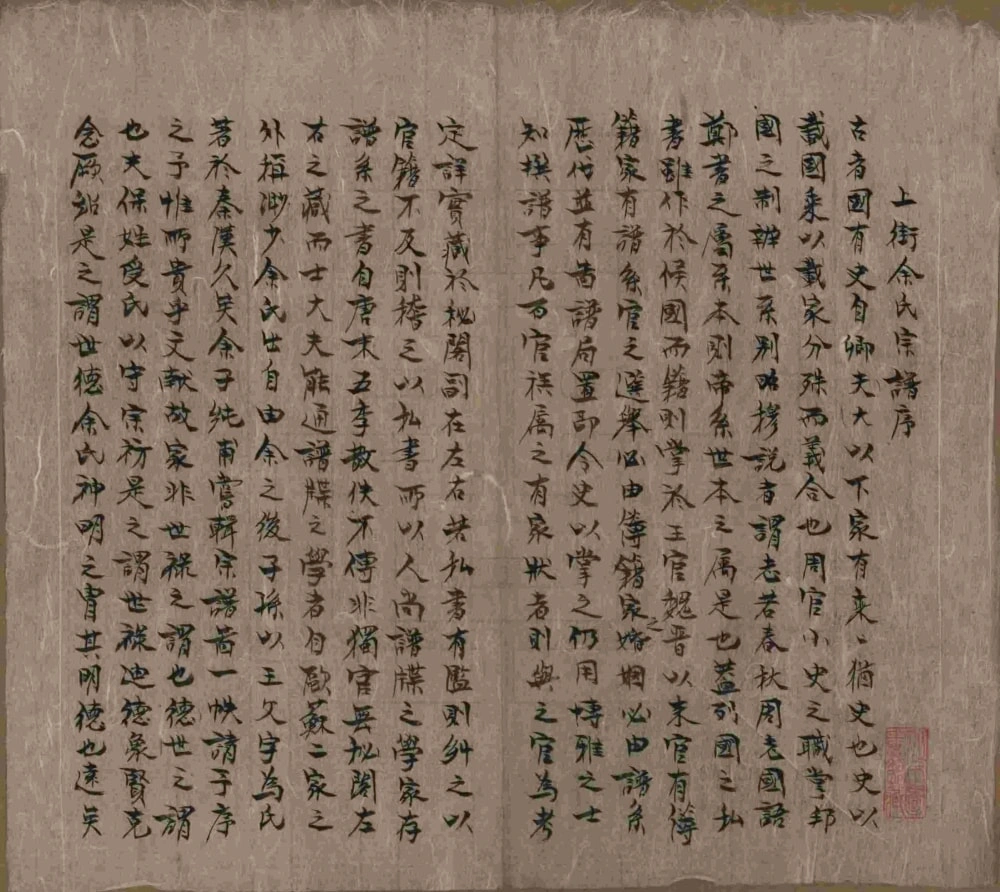 上街余氏宗譜序
古者國有史自卿夫大以下家有乘〻猶史也史以
載國乘以載家分殊而義合也周官小史之職掌邦
國之制辨世系别昭穆説者謂志若春秋周志國語
鄭書之属系本則帝系世本之属是也蓋列國之私
書雖作於候國而籍則掌於王官魏晋以来官有簿
籍家有譜系官之選舉必由簿籍家之婚姻必由譜系
歷代並有啚譜局置郎令史以掌之仍用博雅之士
知撰譜事凡百官族属之有家狀者則與之官為考
定詳實藏於秘閣副在左右若私書有濫則糾之以
官籍不及則稽之以私書而以人尚譜牒之學家存
譜系之書自唐末五季散佚不傳非獨官無秘閣左
右之藏而士大夫能通譜牒之學者自歐蘇二家之
外稱尠少余氏出自由余之後子孫以王父字為氏
著於秦漢久矣余子純甫嘗輯宗譜啚一帙請于序
之予惟所貴乎文獻故家非世禄之謂也德世之謂
也夫保姓受氏以守宗祊是之謂世禄迪德象賢克
念厥紹是之謂世德余氏神明之胄其明德也遠矣